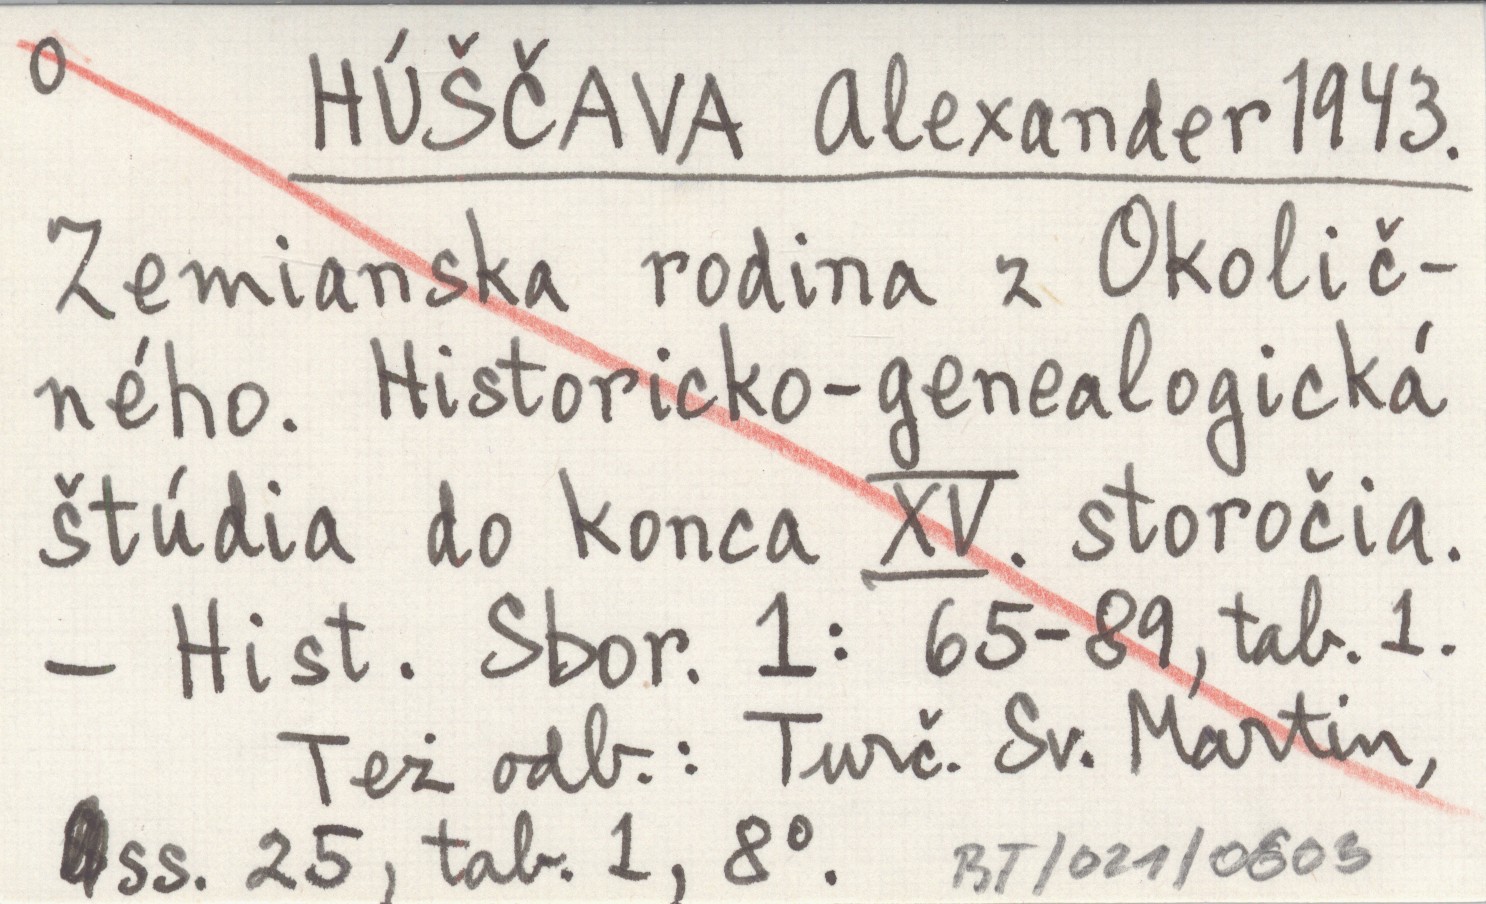 O HÚŠČAVA Alexander 1943.
Zemianska rodina z Okolič-
ného. Historicko-genealogická
štúdia do konca XV. storočia.
— Hist. Sbor. 1: 65-89, tab. 1.
Też odb.: Turč. Sv. Martin,
ss. 25, tab. 1, 8°.
RT/021/0603